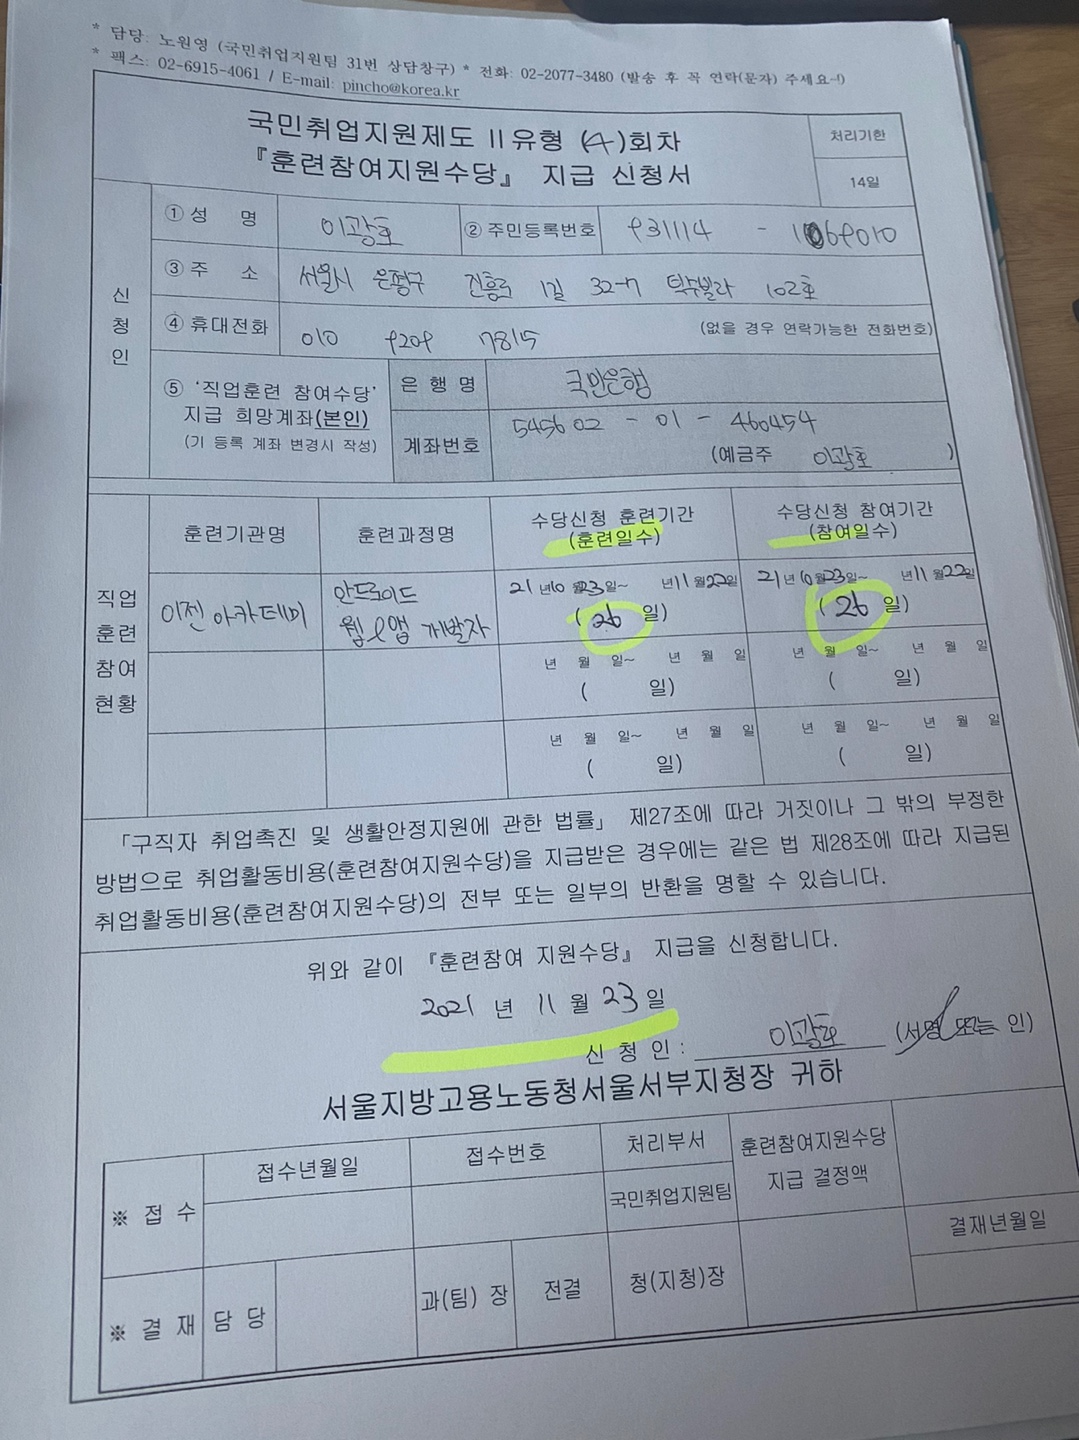 * 담당: 노원영 (국민취업지원팀 31번 상담창구) * 전화: 02-2077-3480 (발송 후 꼭 연락(문자) 주세요~!)
* 팩스: 02-6915-4061 / E-mail: pincho@korea.kr
국민취업지원제도 II유형 (4)회차
『훈련참여지원수당』 지급 신청서
처리기한
14일
신청인
① 성 명 이광호 ② 주민등록번호 931114 - 1069010
③ 주 소 서울시 은평구 진흥로 1길 32-7 탁수빌라 102호
④ 휴대전화 010 9209 7815 (없을 경우 연락가능한 전화번호)
⑤ '직업훈련 참여수당'
지급 희망계좌(본인)
(기 등록 계좌 변경시 작성)
은 행 명 국민은행
계좌번호 545602 - 01 - 460454
(예금주 이광호 )
직업훈련참여현황
훈련기관명 훈련과정명 수당신청 훈련기간 (훈련일수) 수당신청 참여기간 (참여일수)
이젠 아카데미 안드로이드 웹&앱 개발자 21년10월23일~ 년11월22일 (26 일) 21년10월23일~ 년11월22일 (26 일)
년 월 일~ 년 월 일 년 월 일~ 년 월 일
( 일) ( 일)
년 월 일~ 년 월 일 년 월 일~ 년 월 일
( 일) ( 일)
「구직자 취업촉진 및 생활안정지원에 관한 법률」 제27조에 따라 거짓이나 그 밖의 부정한
방법으로 취업활동비용(훈련참여지원수당)을 지급받은 경우에는 같은 법 제28조에 따라 지급된
취업활동비용(훈련참여지원수당)의 전부 또는 일부의 반환을 명할 수 있습니다.
위와 같이 『훈련참여 지원수당』 지급을 신청합니다.
2021 년 11 월 23 일
신 청 인 : 이광호 (서명 또는 인)
서울지방고용노동청서울서부지청장 귀하
※ 접 수 접수년월일 접수번호 처리부서 훈련참여지원수당
지급 결정액
국민취업지원팀
결재년월일
※ 결 재 담 당 과(팀) 장 전결 청(지청)장